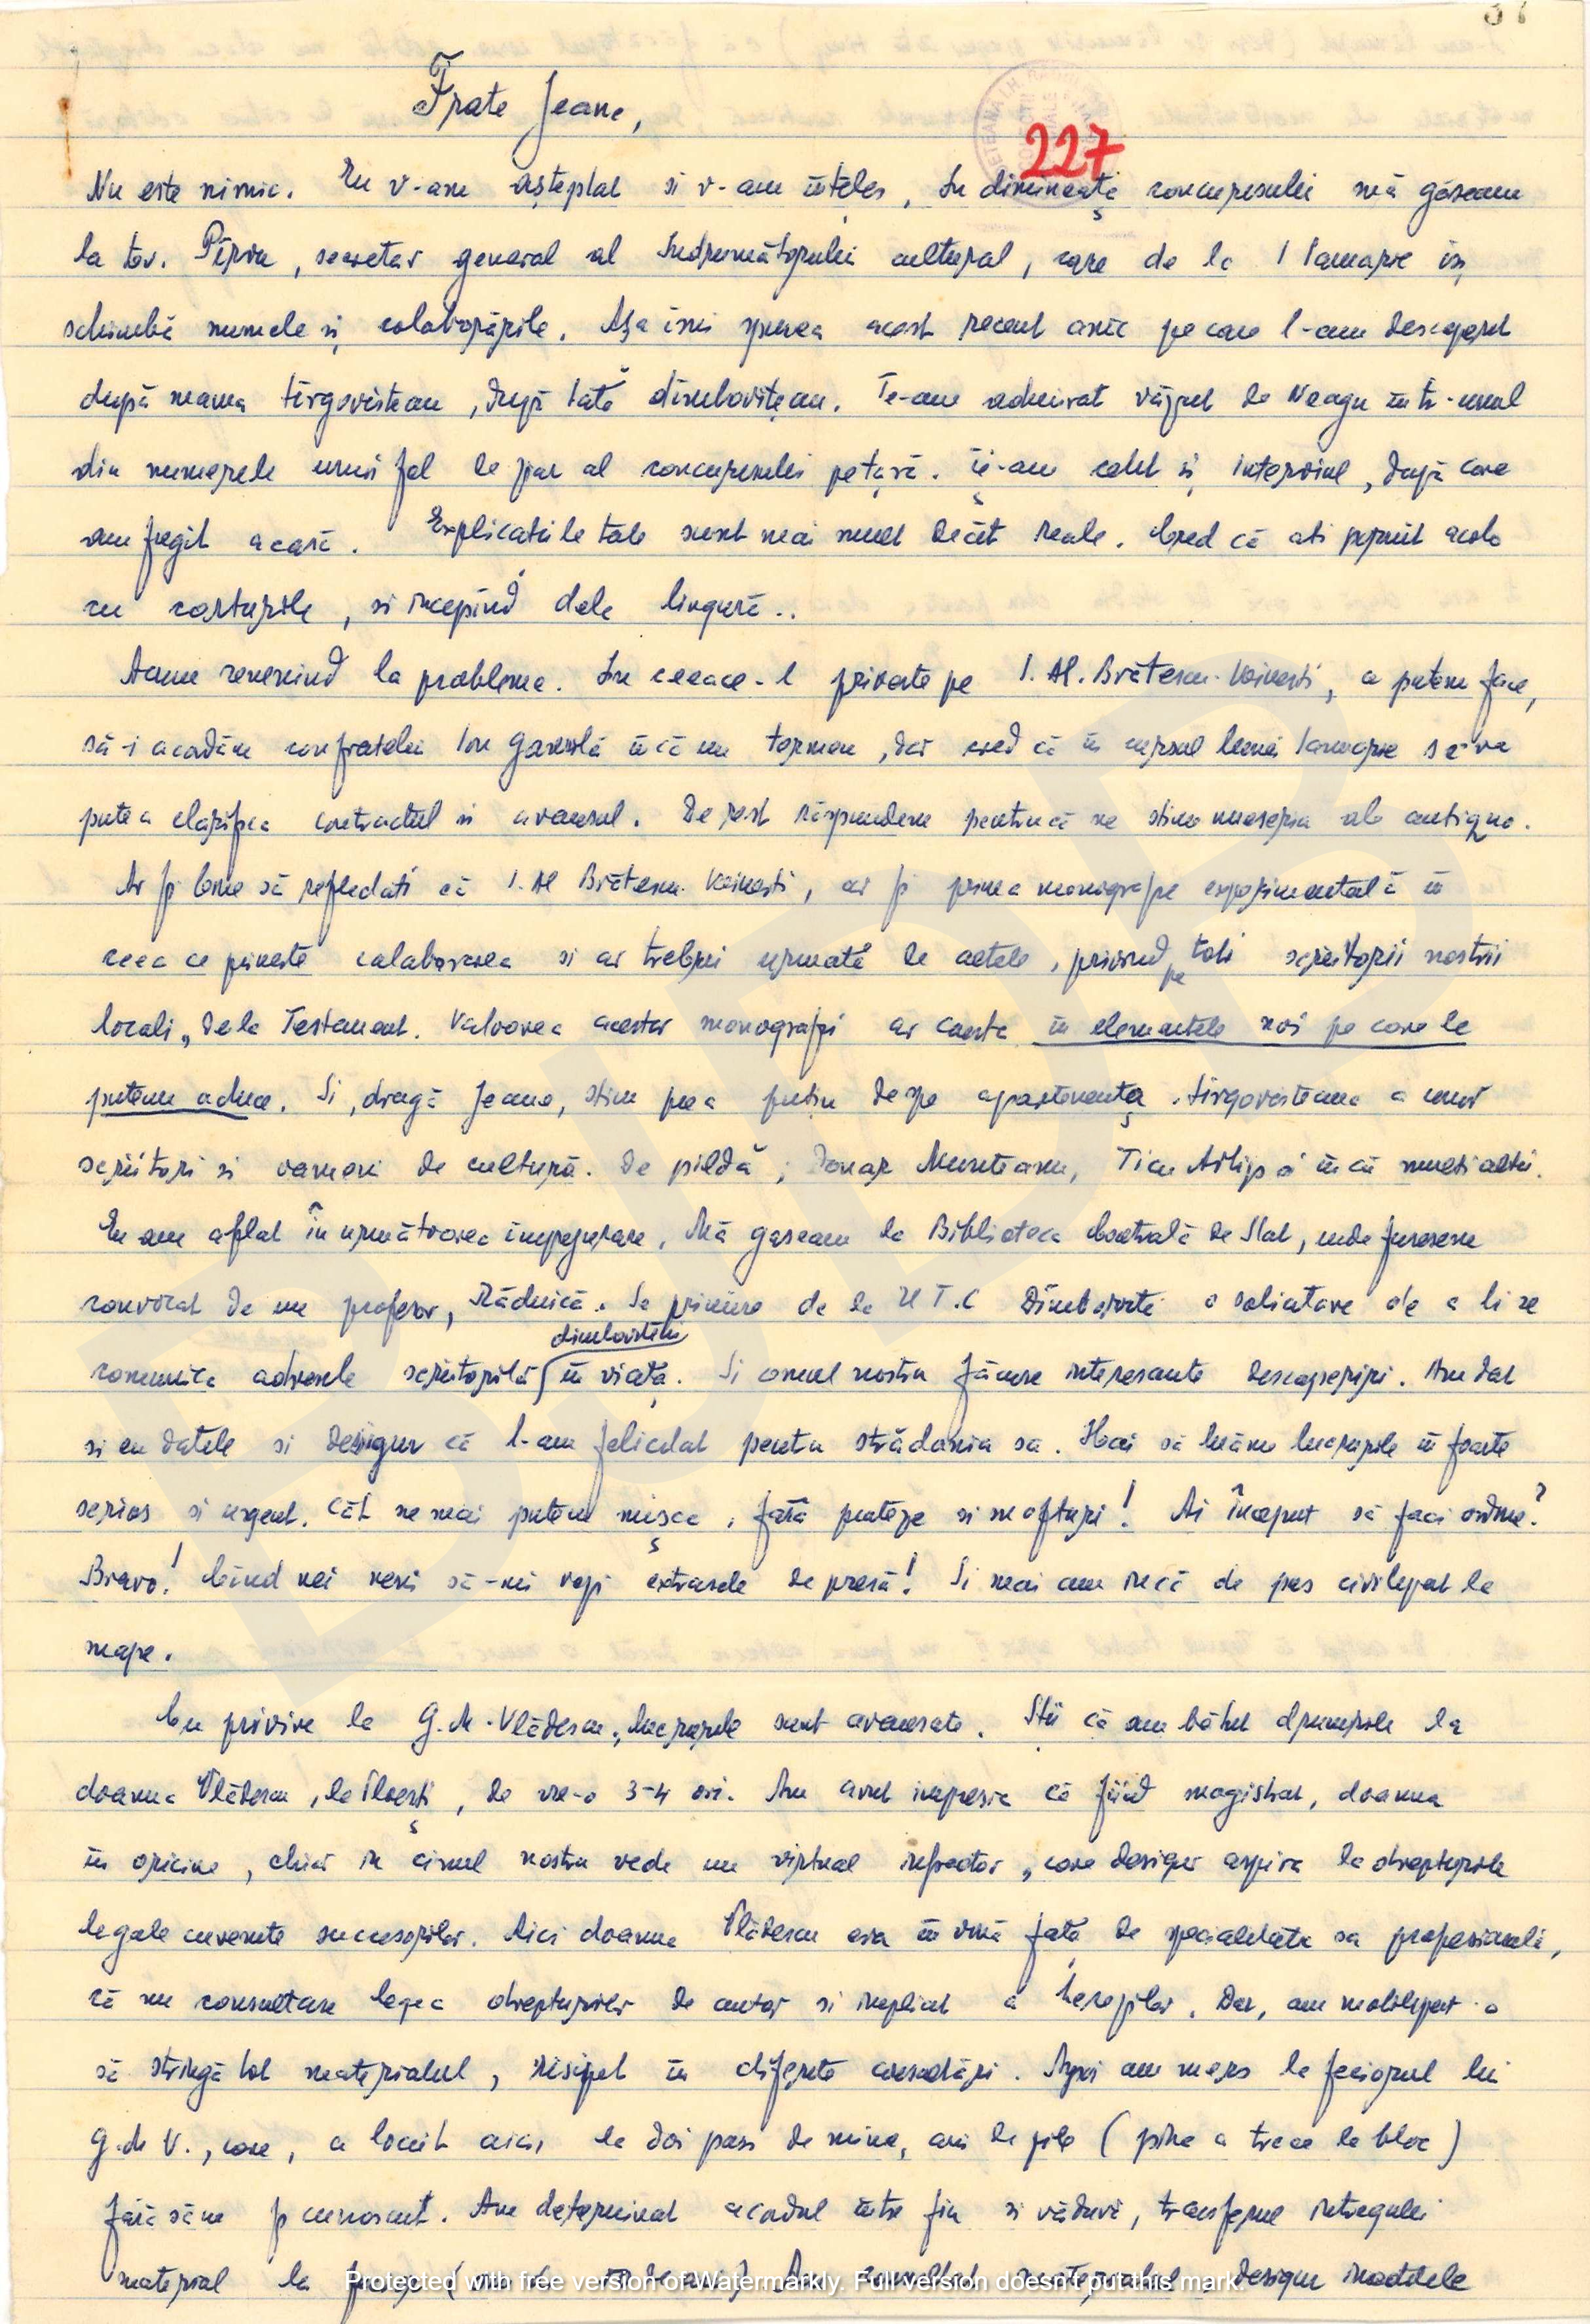 227
Frate Jeane,
Nu este nimic. Eu v-am așteptat si v-am înțeles, In dimineața concursului mă găseam
la tov. Pîrvu, secretar general al Indrumătorului cultural, care de la 1 Ianuarie își
schimbă numele și colaborările. Așa îmi spunea acest recent amic pe care l-am descoperit
după mama tîrgoviștean, după tată dîmbovițean. Te-am admirat văzut de Neagu într-unul
din numerele unui fel de ziar al concursului pe țară. Ți-am citit și interviul, după care
am fugit acasă. Explicatiile tale sunt mai mult decât reale. Cred că ati pornit acolo
cu corturile, si incepînd dela lingură..
Acum revenind la probleme. In ceeace-l priveste pe I. Al. Brătescu-Voinesti, a putem face,
să-i acordăm confratelui Ion Gavrilă încă un termen, dar cred că în cursul lunii Ianuarie se va
putea clarifica contractul si avansul. De rest răspundem pentrucă ne stim meseria ab antiquo.
Ar fi bine să reflectati că I. Al Brătescu-Voinesti, ar fi prima monografie experimentală în
ceea ce priveste colaborarea si ar trebui urmată de celele, privind pe toti scriitorii nostrii
locali, dela Testament. Valoarea acestor monografii ar consta în elementele noi pe care le
putem aduce. Si, dragă Jeane, stim prea putin despre apartenența tîrgovisteana a unor
scriitori si oameni de cultură. De pildă, Donar Munteanu, Ticu Arhip si încă multi altii.
Eu am aflat în următoarea imprejurare. Mă gaseam la Biblioteca Centrală de Stat, unde fusesem
convocat de un profesor, Răducă. Se primise de la U T.C Dîmbovita o solicitare de a li se
comunica adresele scriitorilor dîmboviteni în viață. Si omul nostru făcuse interesante descoperiri. Am dat
si eu datele si desigur că l-am felicitat pentru strădania sa. Hai să luăm lucrurile în foarte
serios si urgent. Cât ne mai putem mișca, fără proteze si mofturi! Ai început să faci ordine?
Bravo! Cînd vei veni să-mi vezi extrasele de presă! Si mai am încă de pus civilizat la
mape.
Cu privire la G. M. Vlădescu, lucrurile sunt avansate. Stii că am bătut drumurile la
doamna Vlădescu, la Ploești, de vre-o 3-4 ori. Am avut impresia că fiind magistrat, doamna
în oricine, chiar în cinul nostru vede un virtual infractor, care desigur aspira la drepturile
legale cuvenite succesorilor. Aici doamna Vlădescu era în vină față de specialitatea sa profesională,
că nu consultase legea drepturilor de autor si implicit a herezilor. Dar, am mobilizat-o
să strîngă tot materialul, risipit în diferite ansamblări. Apoi am mers la feciorul lui
G. M V., care, a locuit aici, la doi pasi de mine, ani de zile (pîna a trece la bloc)
fără să ne fi cunoscut. Am determinat acordul între fiu si văduvă, transferul întregului
material la fecior Am consultat materialul, desigur
Protected with free version of Watermarkly. Full version doesn't put this mark.